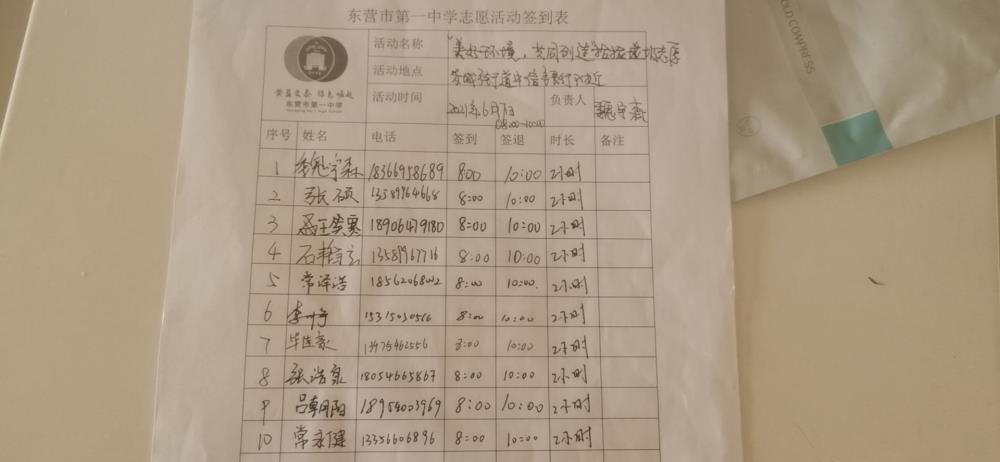 东营市第一中学志愿活动签到表
活动名称 "美好环境,共同创造"捡垃圾志愿
活动地点 行附近
黄蓝交泰 绿色崛起
东营市第一中学
活动时间 2021年6月 日 08:00-10:00 负责人 魏宇森
序号 姓名 电话 签到 签退 时长 备注
1 魏宇森 18366958689 8:00 10:00 2小时
2 张硕 13589964668 8:00 10:00 2小时
3 18906479180 8:00 10:00 2小时
4 石 13589967716 8:00 10:00 2小时
5 常泽浩 18562068002 8:00 10:00 2小时
6 李 15315030566 8:00 10:00 2小时
7 毕佳豪 13475462556 8:00 10:00 2小时
8 张浩泉 18054665867 8:00 10:00 2小时
9 吕朝阳 18954023969 8:00 10:00 2小时
10 常永健 13356606896 8:00 10:00 2小时
OLD COMPRESS